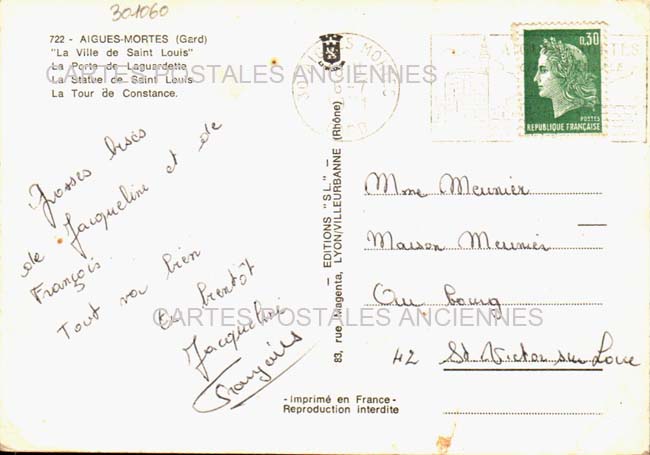 301060
722 - AIGUES-MORTES (Gard)
"La Ville de Saint Louis"
La Porte de Laguardette
La Statue de Saint Louis
La Tour de Constance.
CARTES POSTALES ANCIENNES
Grosses bises
de Jacqueline et de
François.
Tout va bien
A bientôt
Jacqueline
François
CARTES POSTALES ANCIENNES
83, rue Magenta, LYON/VILLEURBANNE (Rhône)
— EDITIONS "S.L." —
AIGUES MORTES
0,30
POSTES
REPUBLIQUE FRANÇAISE
Mme Meunier
Maison Meunier
Au bourg
42 St Victor sur Loire
- Imprimé en France -
Reproduction interdite